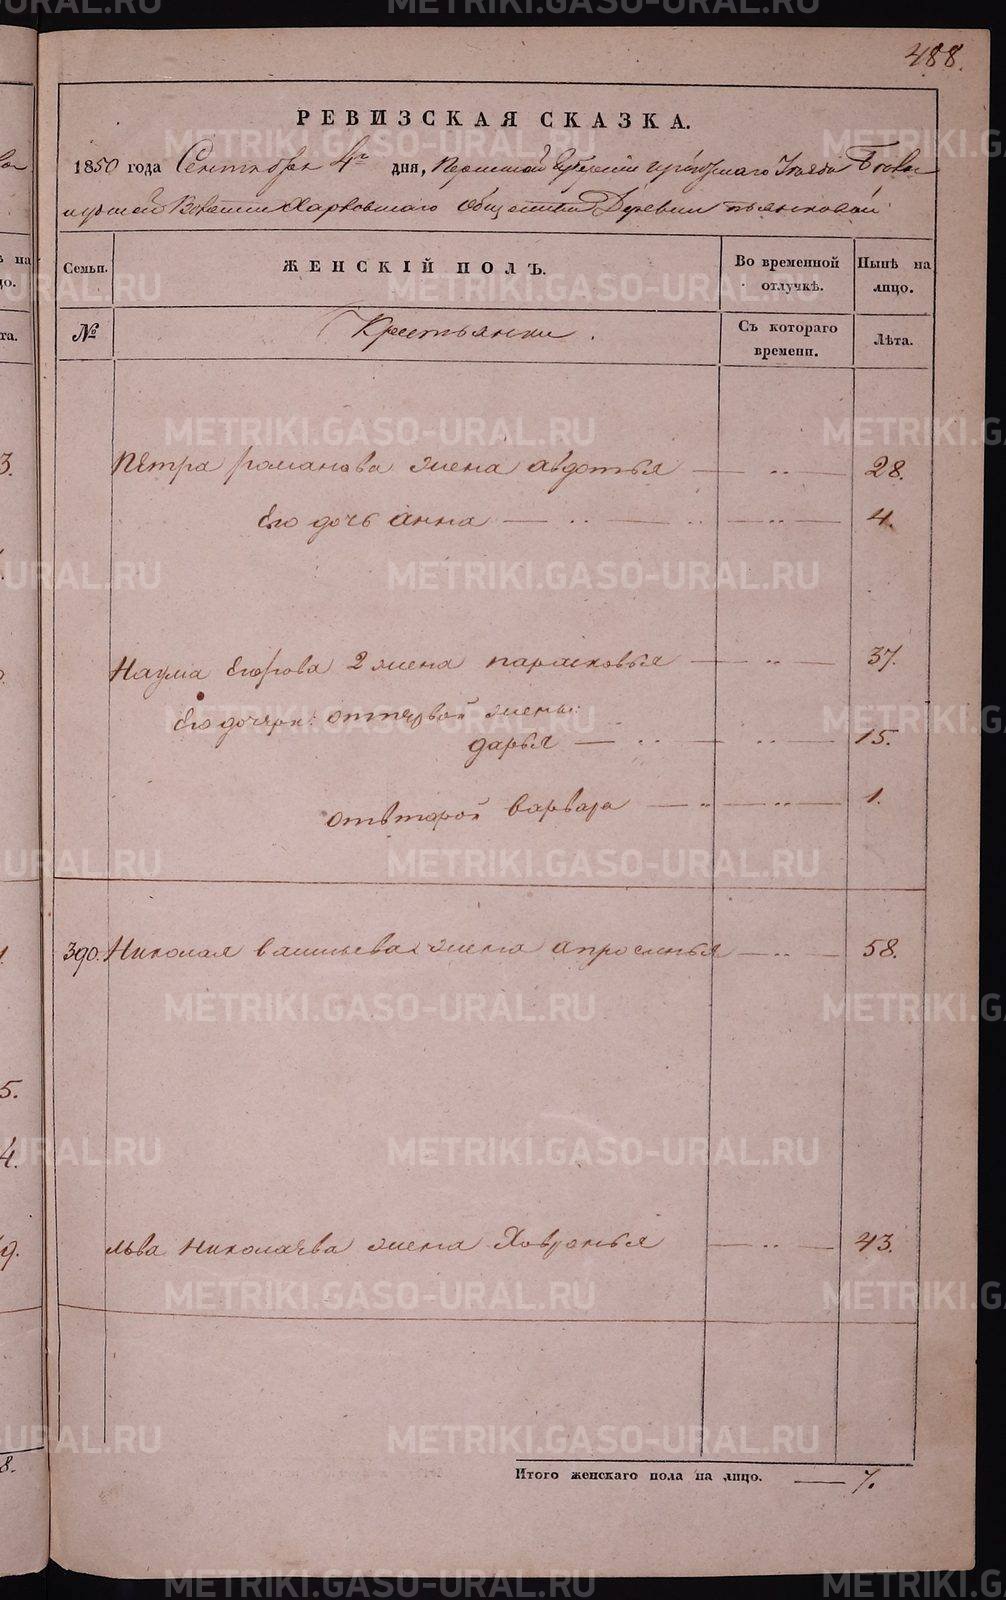 488.
РЕВИЗСКАЯ СКАЗКА.
1850 года Сентября 4го дня, Пермской Губернии Ирбитскаго Уезда
Волости Харловскаго общества Деревни
Семьи. ЖЕНСКІЙ ПОЛЪ. Во временной отлучкѣ. Нынѣ на лицо.
№ Крестьянки. Съ котораго времени. Лѣта.
Петра романова жена авдотья — 28.
Его дочь анна — 4.
Наума Егорова 2 жена парасковья — 37.
Его дочери: отпервой жены:
дарья — 15.
отвторой варвара — 1.
390. Николая васильева жена апросинья — 58.
льва николаева жена Ховронья — 43.
Итого женскаго пола на лицо. — 7.
METRIKI.GASO-URAL.RU